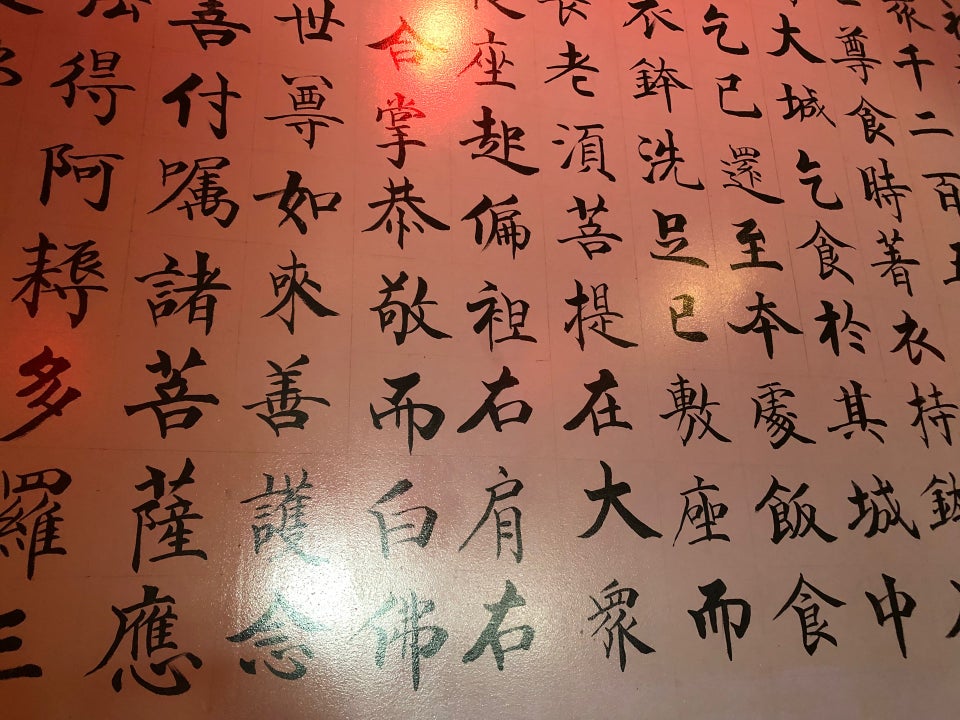 千二百
尊食時著衣持鉢
大城乞食於其城中
乞已還至本處飯食
衣鉢洗足已敷座而
長老須菩提在大眾
座起偏袒右肩右
合掌恭敬而白佛
世尊如來善護念
善付囑諸菩薩應
得阿耨多羅三